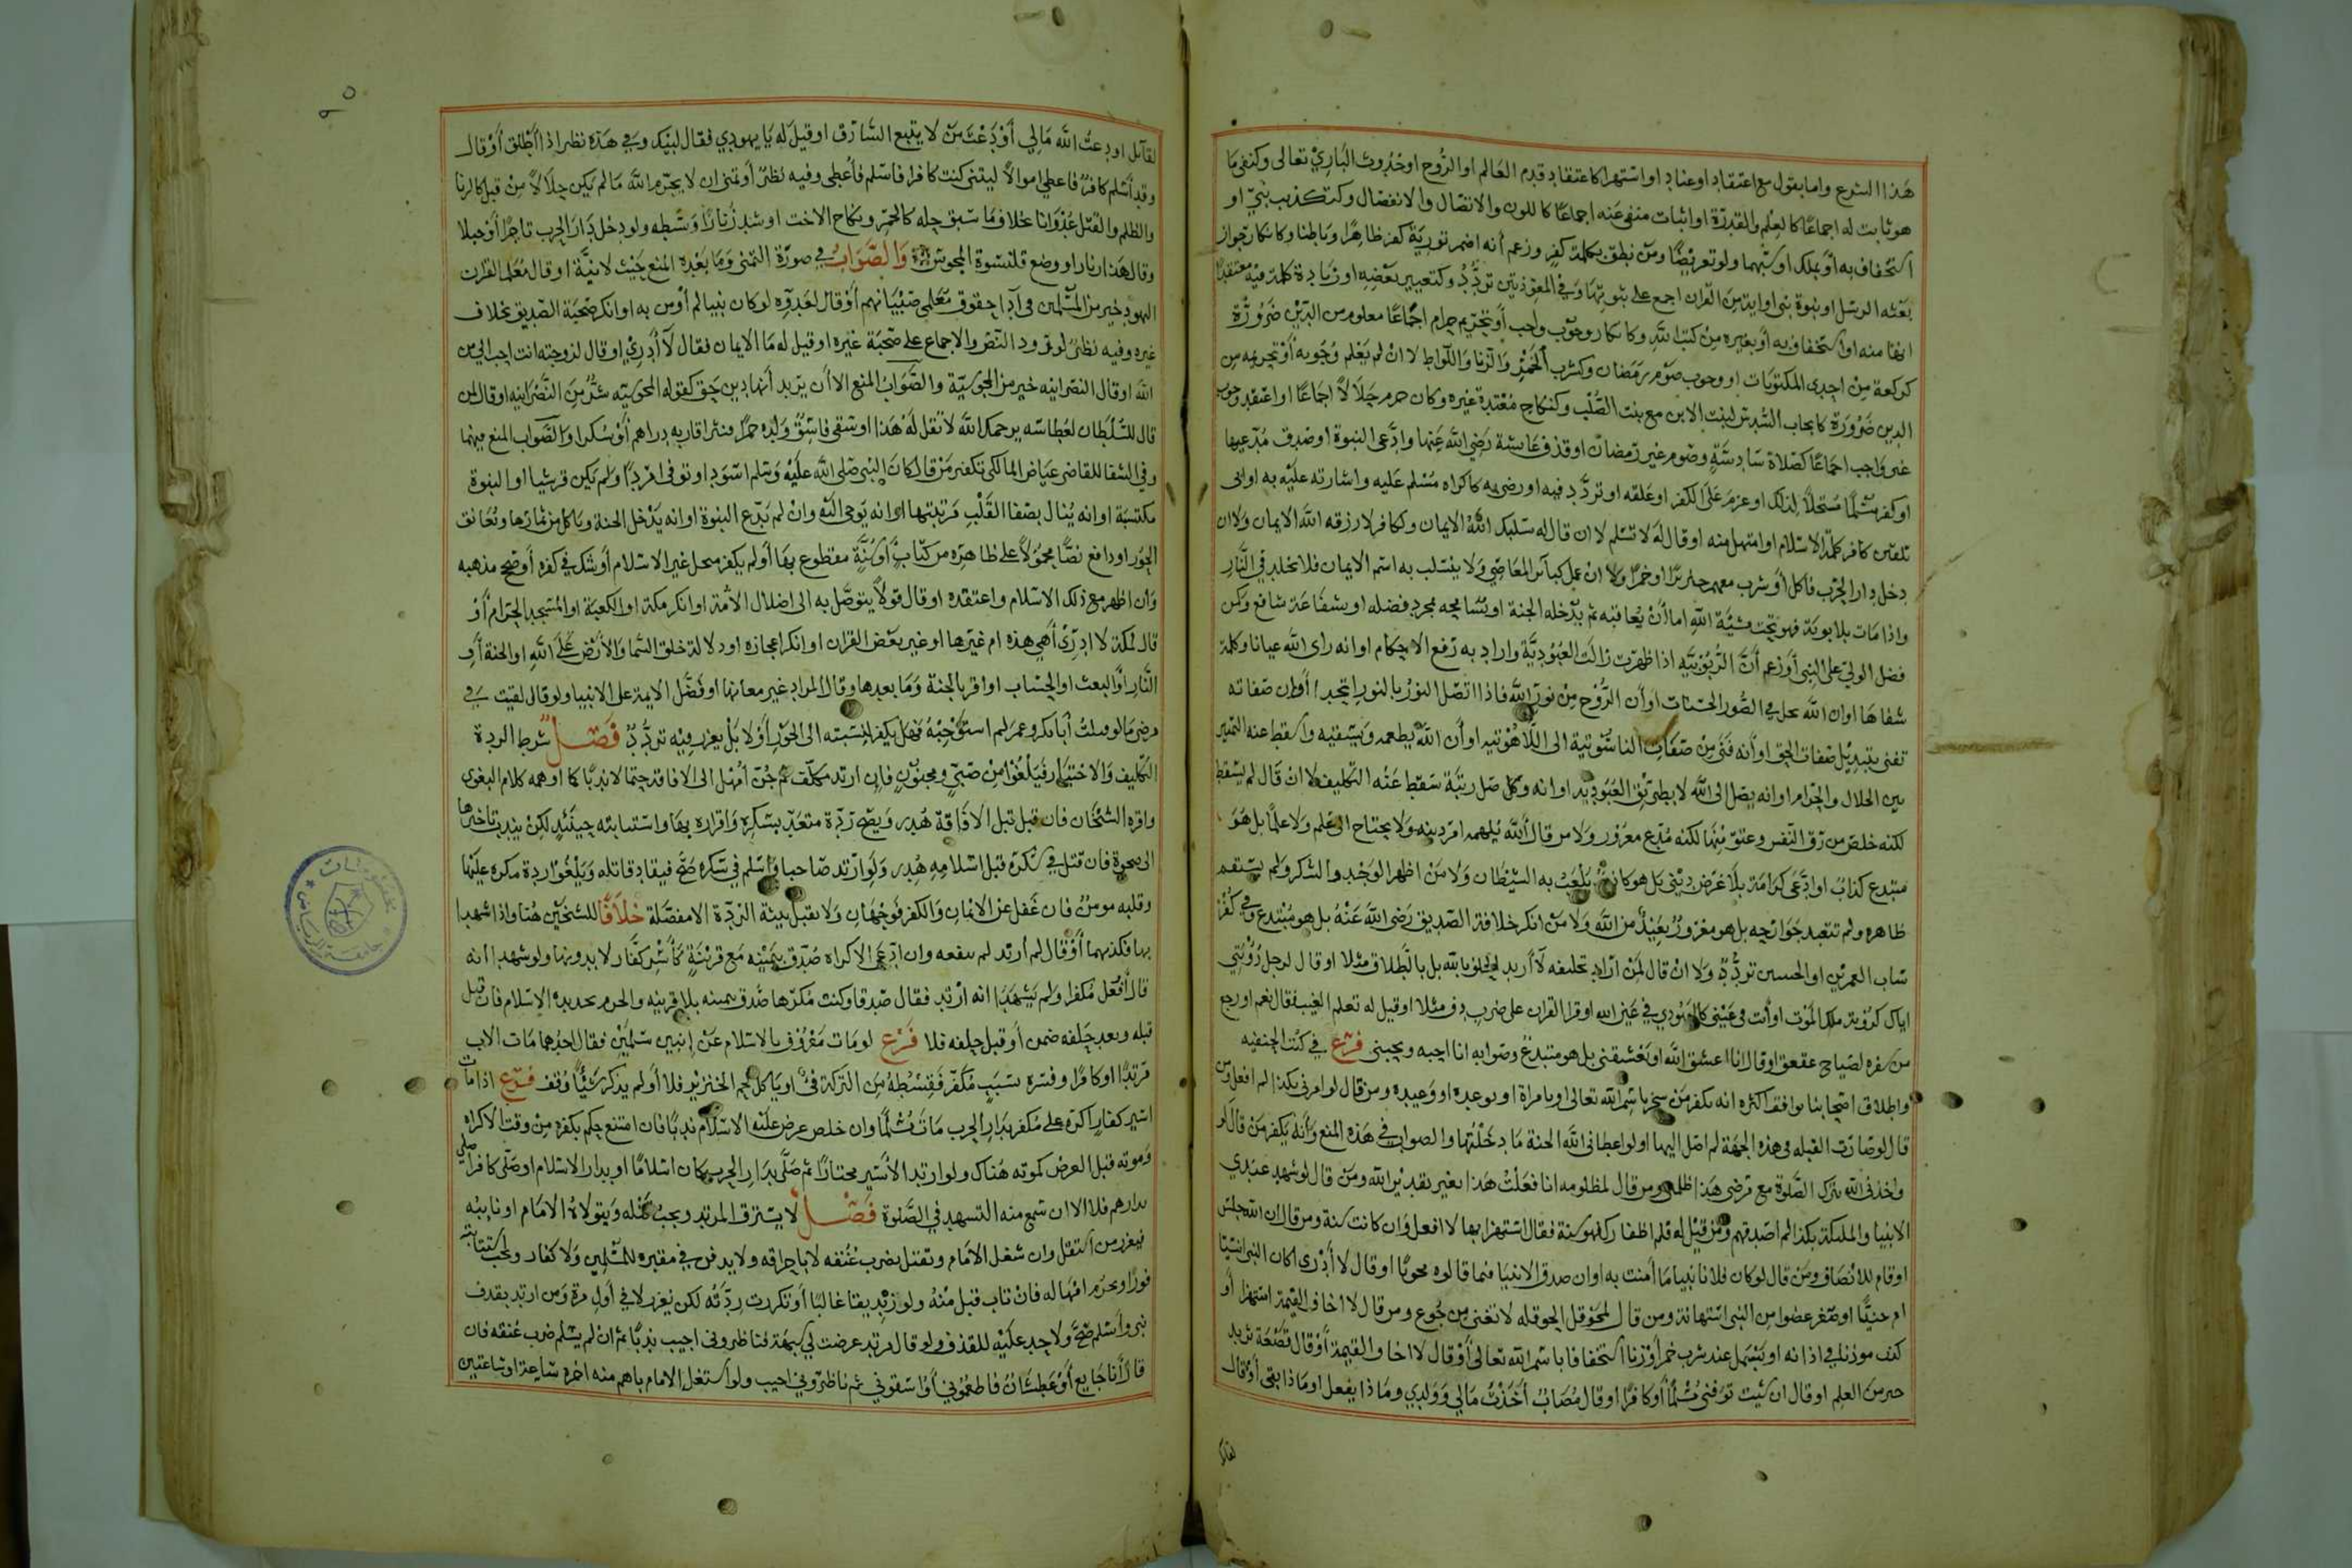 هذا الشرع واما بقول مع اعتقاد او عناد او استهزا كاعتقاد قدم العالم او الروح او حدوث الباري تعالى وكنفي ما
هو ثابت له اجماعا كالعلم والقدرة او اثبات منفي عنه اجماعا كاللون والاتصال والانفصال وكتكذيب نبي او
استخفاف به او بملك او سبهما ولو تعريضا ومن نطق بكلمة كفر وزعم أنه اضمر تورية كفر ظاهرا وباطنا وكانكار جواز
بعثه الرسل او نبوة نبي او اية من القران اجمع على ثبوتها وفي المعوذتين تردد وكتغيير بعضه او زيادة كلمة فيه معتقدا
انها منه او استخفاف به أو بغيره من كتب الله وكانكار وجوب واجب أو تحريم حرام اجماعا معلوم من الدين ضرورة
كركعة من احدى المكتوبات او وجوب صوم رمضان وكشرب الخمر والزنا واللواط لا ان لم يعلم وجوبه أو تحريمه من
الدين ضرورة كايجاب السدس لبنت الابن مع بنت الصلب وكنكاح معتدة غيره وكان حرم حلالا اجماعا او اعتقد وجوب
غير واجب اجماعا كصلاة سادسة وصوم غير رمضان او قذف عايشة رضي الله عنها وادعى النبوة او صدق مدعيها
او كفر مسلما مستحلا لذلك او عزم على الكفر او علقه او تردد فيه او رضي به كاكراه مسلم عليه واشارته عليه به او ابى
تلقين كافر كلمة الاسلام او امتهل منه او قال له لا تسلم لا ان قال له سلبك الله الايمان وكافر لا رزقه الله الايمان ولا ان
دخل دار الحرب فاكل أو شرب معهم خنزيرا او خمرا ولا ان عمل كبائر المعاصي ولا ينسلب به اسم الايمان فلا يخلد في النار
واذا مات بلا توبة فهو تحت مشيئة الله اما أن يعاقبه ثم يدخله الجنة او يسامحه بمجرد فضله او بشفاعة شافع وكمن
فضل الولي على النبي أو زعم أن الربوبية اذا ظهرت زالت العبودية واراد به رفع الاحكام او انه راى الله عيانا وكلمه
شفاها او ان الله يحل في الصور الحسنات او أن الروح من نور الله فاذا اتصل النور بالنور اتحد ا أو ان صفاته
تفنى بتبديل صفات الحق او أنه فني من صفات الناسوتية الى اللاهوتيه او أن الله يطعمه ويسقيه واسقط عنه التمييز
بين الحلال والحرام او انه يصل الى الله لا بطريق العبوديه او انه وكل من وصل رتبة سقط عنه التكليف لا ان قال لم يسقط
لكنه خلص من رق النفس وعتق منها لكنه مبتدع مغرور ولا من قال الله يلهمه امر دينه ولا يحتاج الى علم ولا علما بل هو
مبتدع كذاب او ادعى كرامة بلا غرض ديني بل هو كاذب يلعب به الشيطان ولا من اظهر الوجد والسكر ولم يستقم
ظاهره ولم تتعبد جوارحه بل هو مغرور بعيد من الله ولا من انكر خلافة الصديق رضي الله عنه بل هو مبتدع وفي كفر
ساب العمرين او الحسين تردد ولا ان قال لمن اراد تحليفه لا أريد الحلف بالله بل بالطلاق مثلا او قال لرجل رؤيتي
اياك كرؤية ملك الموت او أنت في عيني كاليهودي في عين الله او قرا القران على ضرب دف مثلا او قيل له تعلم الغيب فقال نعم او رجع
من سفره لصياح عقعق او قال انا اعشق الله او يعشقني بل هو مبتدع وصوابه انا احبه ويحبني فرع في كتب الحنفيه
واطلاق اصحابنا موافقة اكثره انه يكفر من سخر باسم الله تعالى او بامره او بوعده او وعيده ومن قال لو امرني بكذا لم افعل ومن
قال لو صارت القبله في هذه الجهة لم اصل اليها او لو اعطاني الله الجنة ما دخلتها والصواب في هذه المنع وانه يكفر من قال لو
واخذني الله بترك الصلوة مع مرضي هذا ظلمني ومن قال لمظلومه انا فعلت هذا بغير تقدير الله ومن قال لو شهد عندي
الانبيا والملئكة بكذا لم اصدقهم ومن قيل له قلم اظفارك فهو سنة فقال استهزا بها لا افعل وان كانت سنة ومن قال ان الله جلس
او قام للانصاف ومن قال لو كان فلان نبيا ما أمنت به او ان صدق الانبيا فيما قالوه نجونا او قال لا أدري اكان النبي انسيا
ام جنيا او صغر عضوا من النبي استهانة ومن قال لمحوقل الحوقله لا تغني من جوع ومن قال لا اخاف القيمة استهزا أو
كذب مؤذنا في اذانه او يبسمل عند شرب خمر أو زنا استخفافا باسم الله تعالى أو قال لا اخاف القيمة أو قال قصعة ثريد
خير من العلم او قال ان شيت توفني مسلما أو كافرا او قال مصاب أخذت مالي وولدي وما ذا يفعل او ما ذا بقى أو قال
لقائل
لقائل اودعت الله مالي أودعت من لا يتبع السارق او قيل له يا يهودي فقال لبيك وفي هذه نظر اذا أطلق أو قال
وقد أسلم كافر فاعطي اموالا ليتني كنت كافرا فاسلم فأعطى وفيه نظر أو تمنى ان لا يحرم الله ما لم يكن حلالا من قبل كالزنا
والظلم والقتل عدوانا خلاف ما سبق حله كالخمر ونكاح الاخت او شد زنارا وسطه ولو دخل دار الحرب تاجرا أو حبلا
وقال هذا زنار او وضع قلنسوة المجوس والصواب في صورة التمني وما بعده المنع حيث لا نية او قال معلم القران
اليهود خير من المسلمين في آدا حقوق معلمي صبيانهم أو قال لعدوه لو كان نبيا لم أومن به او انكر صحبة الصديق بخلاف
غيره وفيه نظر لورود النص والاجماع على صحبة غيره او قيل له ما الايمان فقال لا أدري او قال لزوجته انت احب الي من
الله او قال النصرانيه خير من المجوسية والصواب المنع الا أن يريد أنها دين حق كقوله المجوسيه شر من النصرانيه او قال لمن
قال للسلطان لعطاسه يرحمك الله لا تقل له هذا او سقى فاسق ولده خمرا فنثر اقاربه دراهم أو سكرا والصواب المنع فيهما
وفي الشفا للقاضي عياض المالكي تكفير من قال كان النبي صلى الله عليه وسلم اسود او توفي امرد ا ولم يكن قرشيا او النبوة
مكتسبة او انه ينال بصفا القلب مرتبتها او انه يوحى اليه وان لم يدع النبوة او انه يدخل الجنة وياكل من ثمارها وتعانق
الحور او دافع نصا محمولا على ظاهره من كتاب أو سنة مقطوع بها أو لم يكفر منتحل غير الاسلام أو شك في كفره أو صحح مذهبه
وان اظهر مع ذلك الاسلام واعتقده او قال قولا يتوصل به الى اضلال الأمة او انكر مكة او الكعبة او المسجد الحرام أو
قال لمكة لا ادري أهي هذه ام غيرها او غير بعض القران او انكر اعجازه او دلالة خلق السما والأرض على الله او الجنة أو
النار أو البعث او الحساب او اقر بالجنة وما بعدها وقال المراد غير معانها او فضل الايمة على الانبيا ولو قال لقيت في
مرضي ما لو قتلت أبا بكر وعمر لم استوجبه فهل يكفر لنسبته الى الجور أو لا بل يعزر فيه تردد فصل شرط الردة
التكليف والاختيار فيلغوا من صبي ومجنون فان ارتد مكلف ثم جن أمهل الى الافاقة حتما لا ندبا كما اوهمه كلام البغوي
واقره الشيخان فان قتل قبل الافاقة هدر ويصح ردة متعد بسكره واقراره بها واستتابته حينئذ لكن يندب تاخيرها
الى صحوة فان قتل في سكره قبل اسلامه هدر ولو ارتد صاحيا وأسلم في سكره صح فيقاد قاتله ويلغوا ردة مكره عليها
وقلبه مومن فان غفل عن الايمان والكفر فوجهان ولا تقبل بينة الردة الا مفصلة خلافا للشيخين هنا واذا شهدا
بها فكذبهما أو قال لم أرتد لم ينفعه وان ادعى الاكراه صدق بيمينه مع قرينة كأسر كفار لا بدونها ولو شهدا أنه
قال أو فعل مكفرا ولم يشهدا انه ارتد فقال صدقا وكنت مكرها صدق بيمينه بلا قرينه والحزم تجديده الاسلام فان قتل
قبله وبعد حلفه ضمن أو قبل حلفه فلا فرع لو مات معروف بالاسلام عن ابنين مسلمين فقال احدهما مات الاب
مرتدا او كافرا وفسره بسبب مكفر فقسطه من التركة فئ او ياكل لحم الخنزير فلا أو لم يذكر شيئا وقف فرع اذا مات
اسير كفار أكره على مكفر بدار الحرب مات مسلما وان خلص عرض عليه الاسلام ندبا فان امتنع حكم بكفره من وقت الاكراه
وموته قبل العرض كموته هناك ولو ارتد الأسير مختارا ثم صلى بدار الحرب كان اسلاما او بدار الاسلام او صلى كافر اصلي
بدارهم فلا الا ان سمع منه التشهد في الصلوة فصل لا يسترق المرتد ويجب قتله ويتولاه الامام او نايبه
فيعزر من استقل وان شغل الامام وتقتل بضرب عنقه لا باحراقه ولا يدفن في مقبره للمسلمين ولا كفار ويجب استتابته
فورا ويحرم امهاله فان تاب قبل منه ولو زنديقا غالبا أو تكررت ردته لكن يعزر لا في أول مرة ومن ارتد بقذف
نبي وأسلم صح ولا حد عليه للقذف ولو قال مرتد عرضت لي شبهة فناظروني اجيب ندبا ثم ان لم يسلم ضرب عنقه فان
قال أنا جايع أو عطشان فاطعموني أو اسقوني ثم ناظروني اجيب ولو استغل الامام باهم منه اخره ساعة او ساعتين